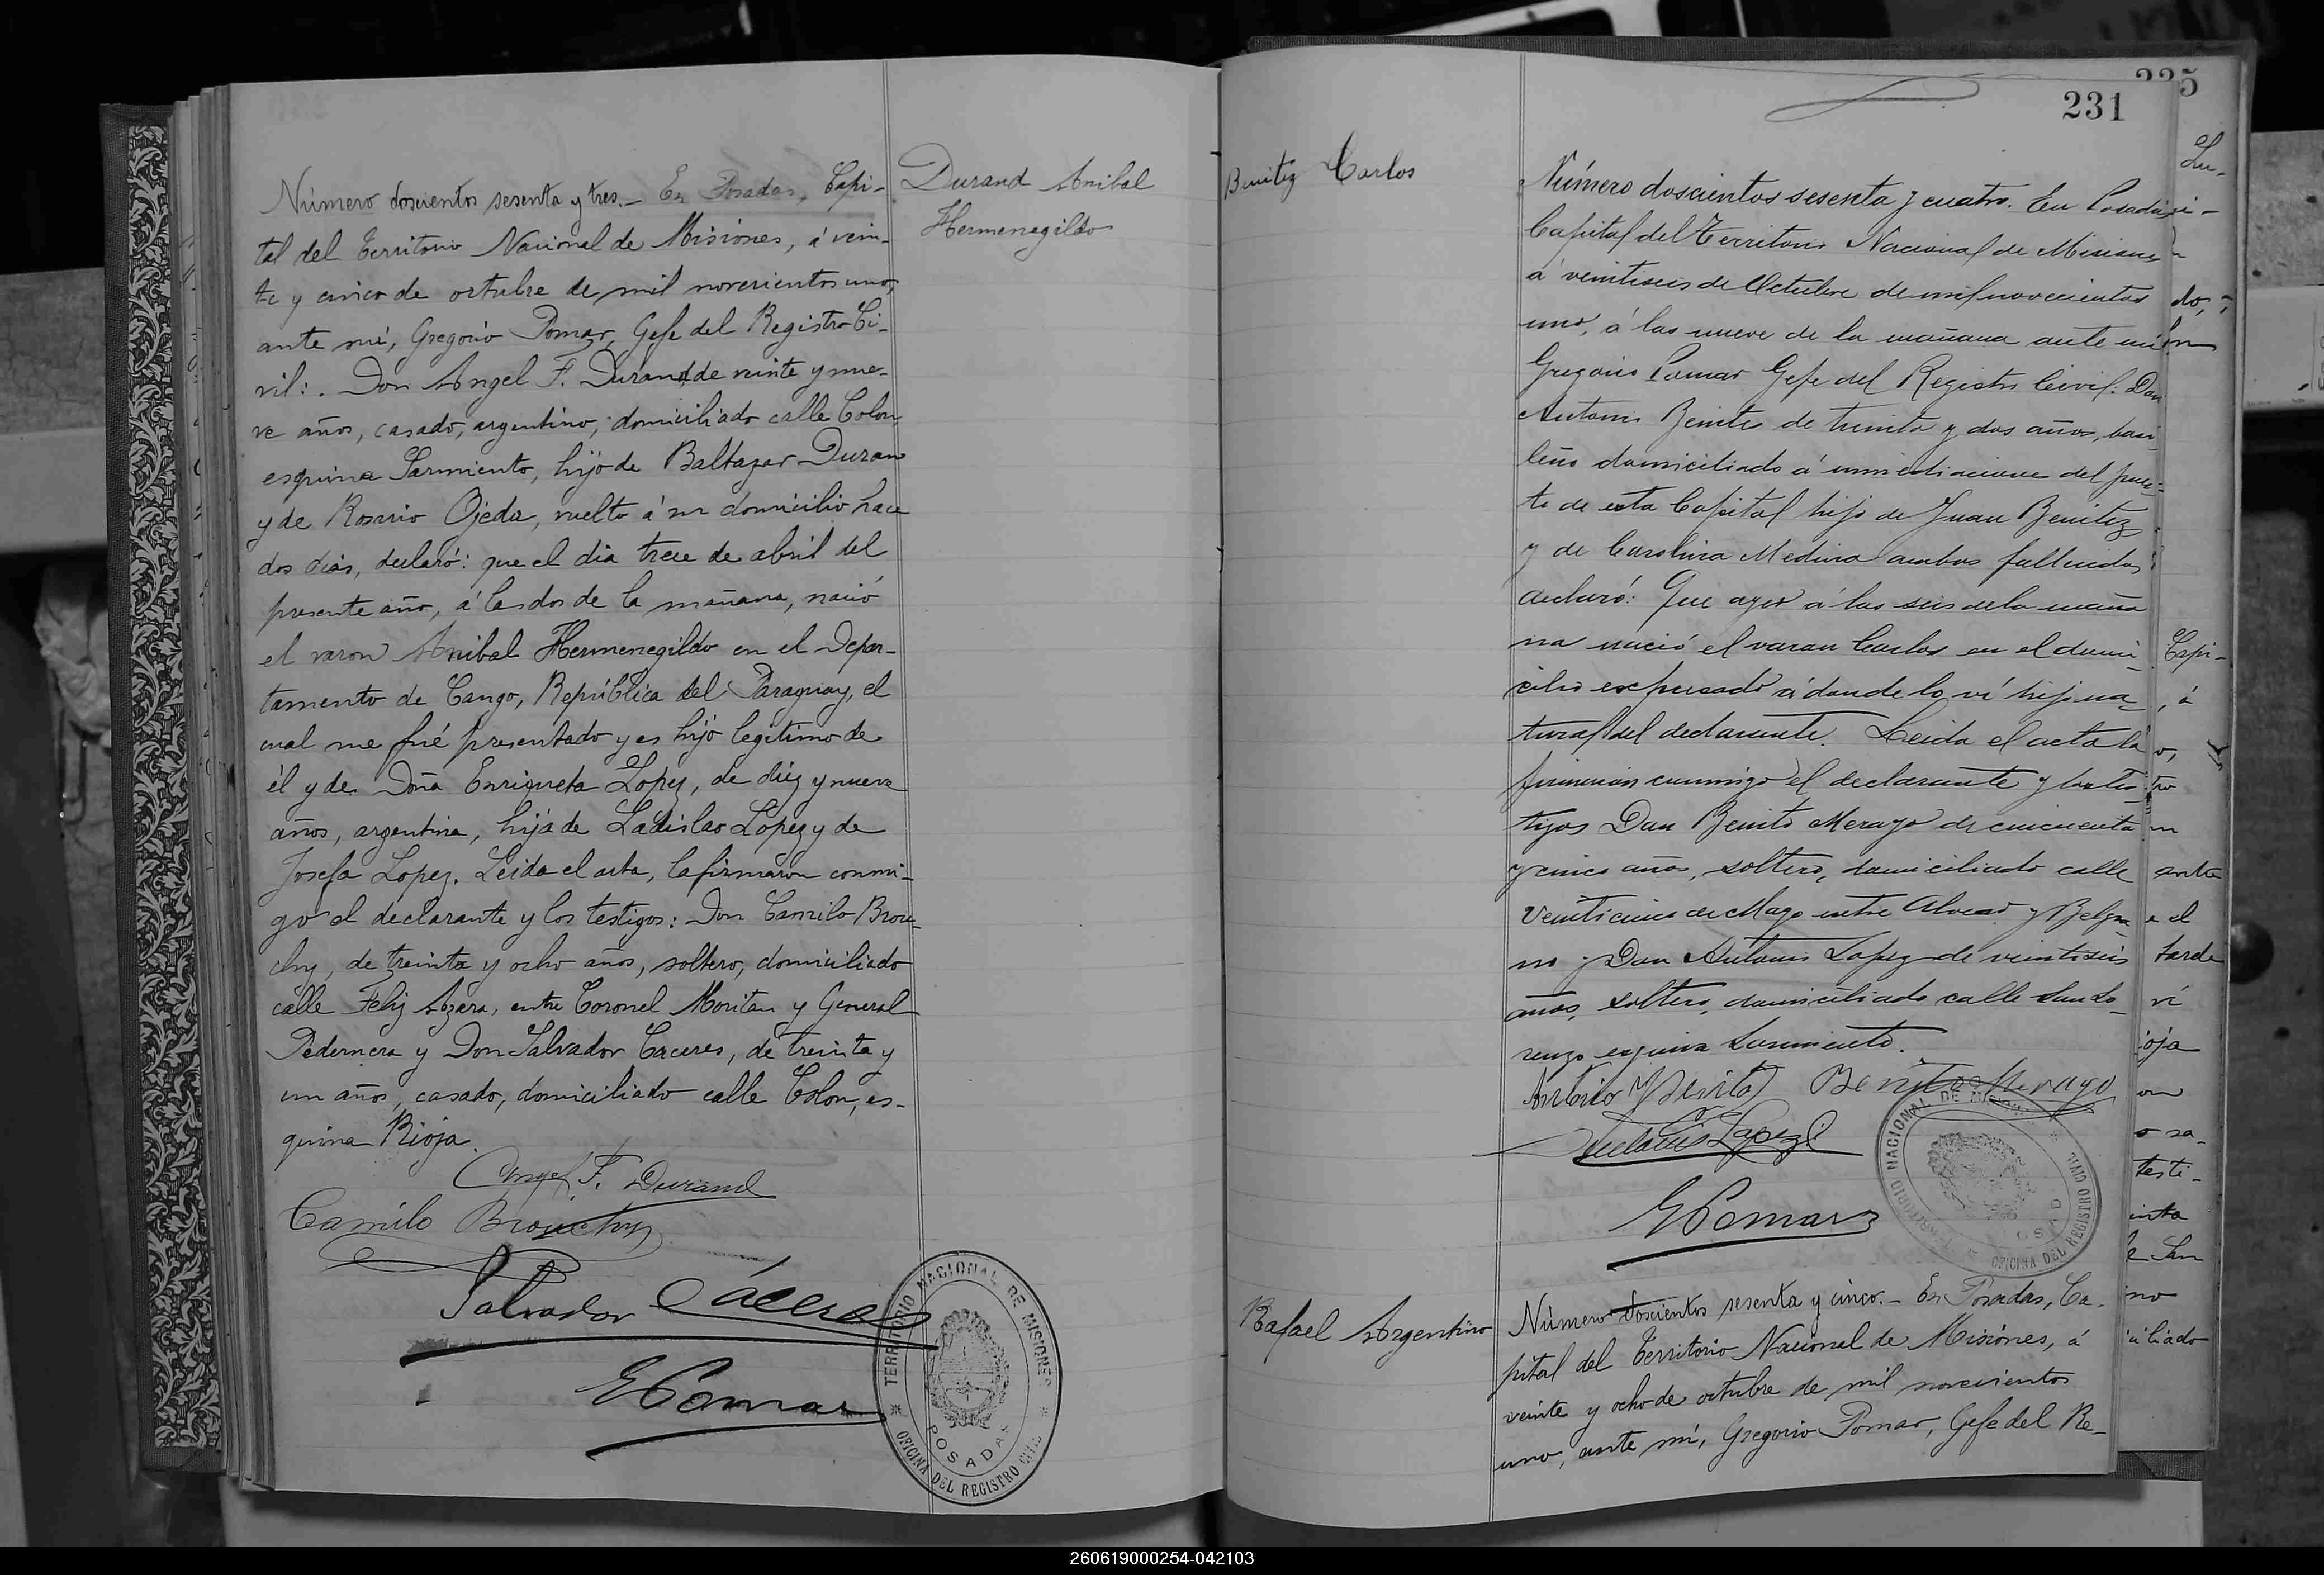 Número doscientos sesenta y tres.- En Posadas, Capi-
tal del Territorio Nacional de Misiones, á vein-
te y cinco de octubre de mil novecientos uno,
ante mí, Gregorio Pomar, Gefe del Registro Ci-
vil: . Don Angel F. Durand, de veinte y nue-
ve años, casado, argentino, domiciliado calle Colon
esquina Sarmiento, hijo de Baltazar Duran
y de Rosario Ojeda, vuelto á su domicilio hace
dos dias, declaró: que el dia trece de abril del
presente año, á las dos de la mañana, nació
el varon Anibal Hermenegildo en el Depar-
tamento de Cango, República del Paraguay, el
cual me fué presentado y es hijo legítimo de
él y de Doña Enriqueta Lopez, de diez y nueve
años, argentina, hija de Ladislao Lopez y de
Josefa Lopez. Leida el acta, la firmaron conmi-
go el declarante y los testigos: Don Camilo Brou-
chy, de treinta y ocho años, soltero, domiciliado
calle Feliz Azara, entre Coronel Moritan y General
Pedernera y Don Salvador Caceres, de treinta y
un años, casado, domiciliado calle Colon, es-
quina Rioja.
Angel F. Durand
Camilo Brouchy
Salvador Cáceres
GPomar
TERRITORIO NACIONAL DE MISIONES
POSADAS
OFICINA DEL REGISTRO CIVIL
Durand Anibal
Hermenegildo
225
231
Benitez Carlos
Número doscientos sesenta y cuatro. En Posadas
Capital del Territorio Nacional de Misiones
á veintiseis de Octubre de mil novecientos
uno, á las nueve de la mañana ante mí
Gregorio Pomar Gefe del Registro Civil: Don
Antonio Benites de treinta y dos años, brasi
leño domiciliado á inmediaciones del puer-
to de esta Capital hijo de Juan Benitez
y de Carolina Medina ambos fallecidos
declaró: Que ayer á las seis de la maña
na nació el varon Carlos en el domi-
cilio expresado á donde lo ví hijo na-
tural del declarante. Leida el acta la
firmaron conmigo el declarante y los tes-
tigos Don Benito Merayo de cincuenta
y cinco años, soltero, domiciliado calle
Veinticinco de Mayo entre Alvear y Belgra
no y Don Antonio Lopez de veintiseis
años, soltero, domiciliado calle San Lo-
renzo esquina Sarmiento.
Antonio Benites Benito Merayo
Lopez
GPomar
TERRITORIO NACIONAL DE MISIONES
POSADAS
OFICINA DEL REGISTRO CIVIL
Rafael Argentino
Número doscientos sesenta y cinco.- En Posadas, Ca-
pital del Territorio Nacional de Misiones, á
veinte y ocho de octubre de mil novecientos
uno, ante mí, Gregorio Pomar, Gefe del Re-
Lu-
do,
Capi-
, á
ante
e el
tarde
ví
ioja
on
o sa-
testi-
inta
e San
no
iliado
260619000254-042103